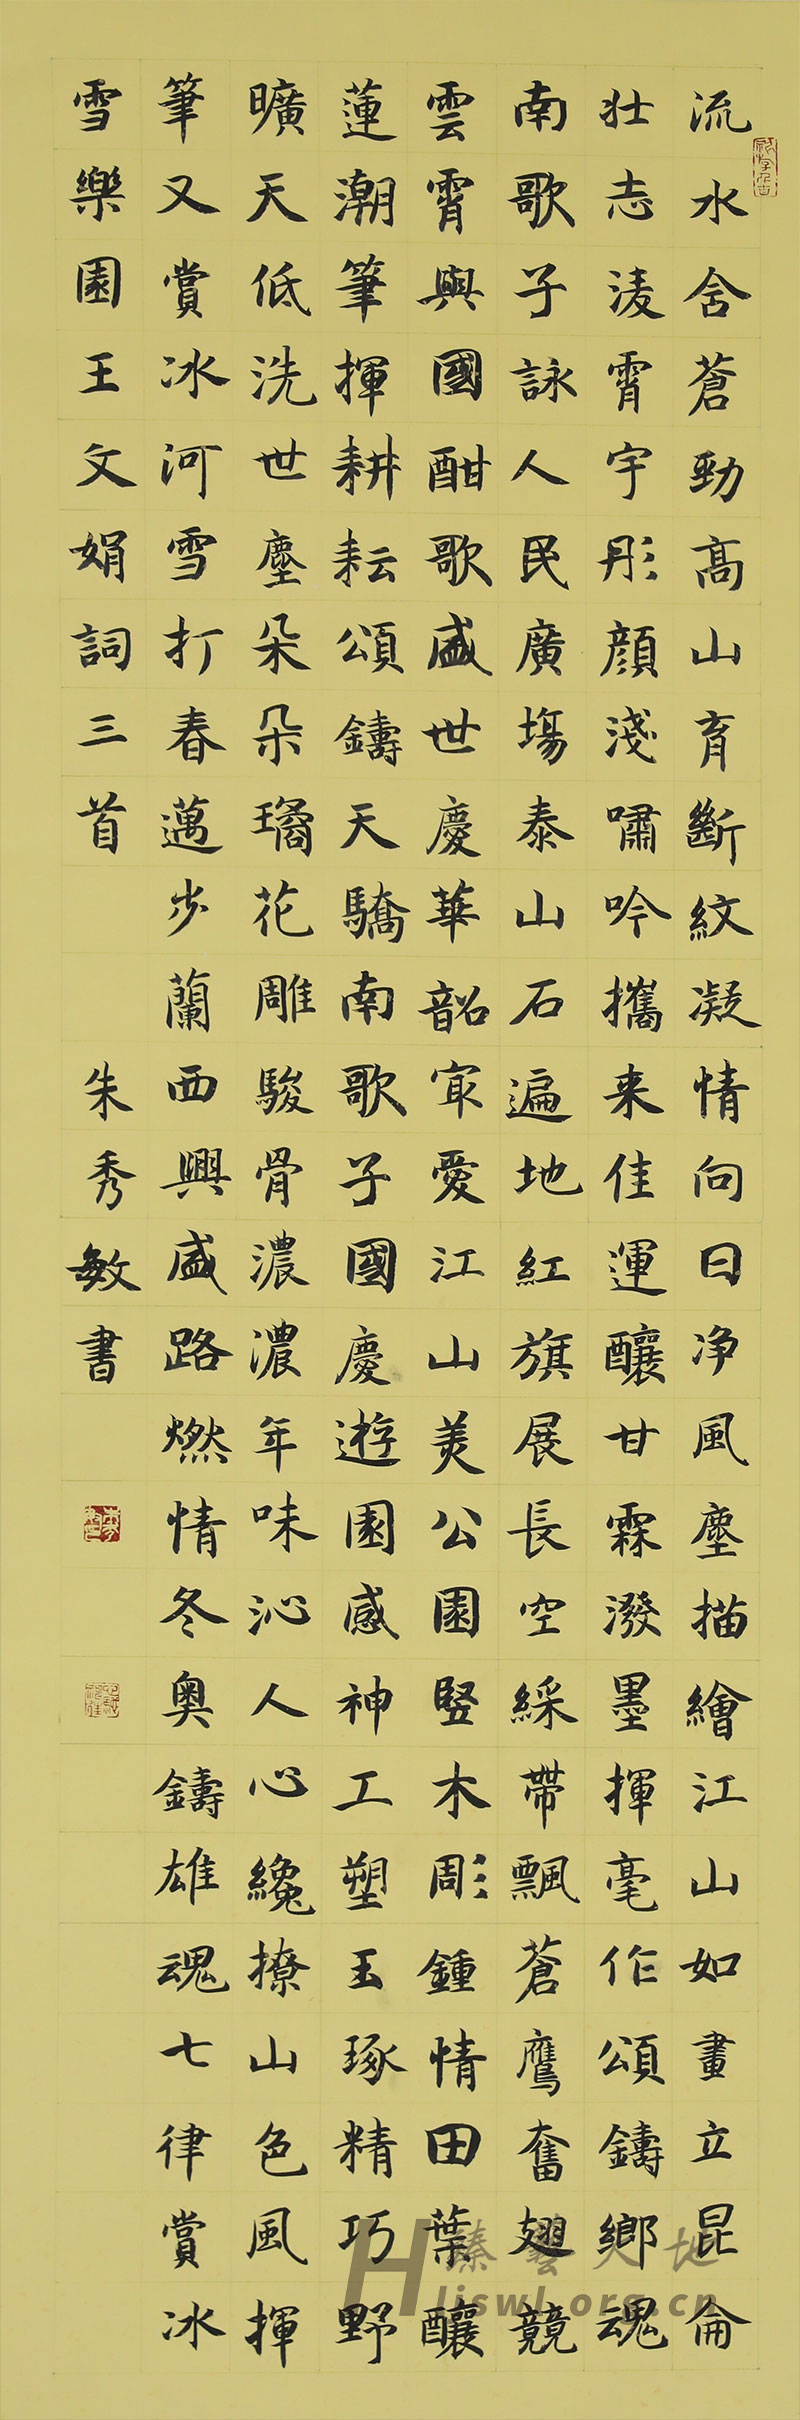 流水含蒼勁高山育斷紋凝情向日净風塵描繪江山如畫立昆侖
壯志淩霄宇彤顔淺嘯吟攜来佳運釀甘霖潑墨揮毫作頌鑄鄉魂
南歌子詠人民廣場泰山石遍地紅旗展長空綵帶飄蒼鷹奮翅競
雲霄與國酣歌盛世慶華韶 愛江山美公園竪木彫鍾情田葉釀
蓮潮筆揮耕耘頌鑄天驕南歌子國慶遊園感神工塑玉琢精巧野
曠天低洗世塵朵朵璚花雕駿骨濃濃年味沁人心纔撩山色風揮
筆又賞冰河雪打春邁步蘭西興盛路燃情冬奥鑄雄魂七律賞冰
雪樂園王文娟詞三首 朱秀敏書
臻藝天地
Hlswl.org.cn